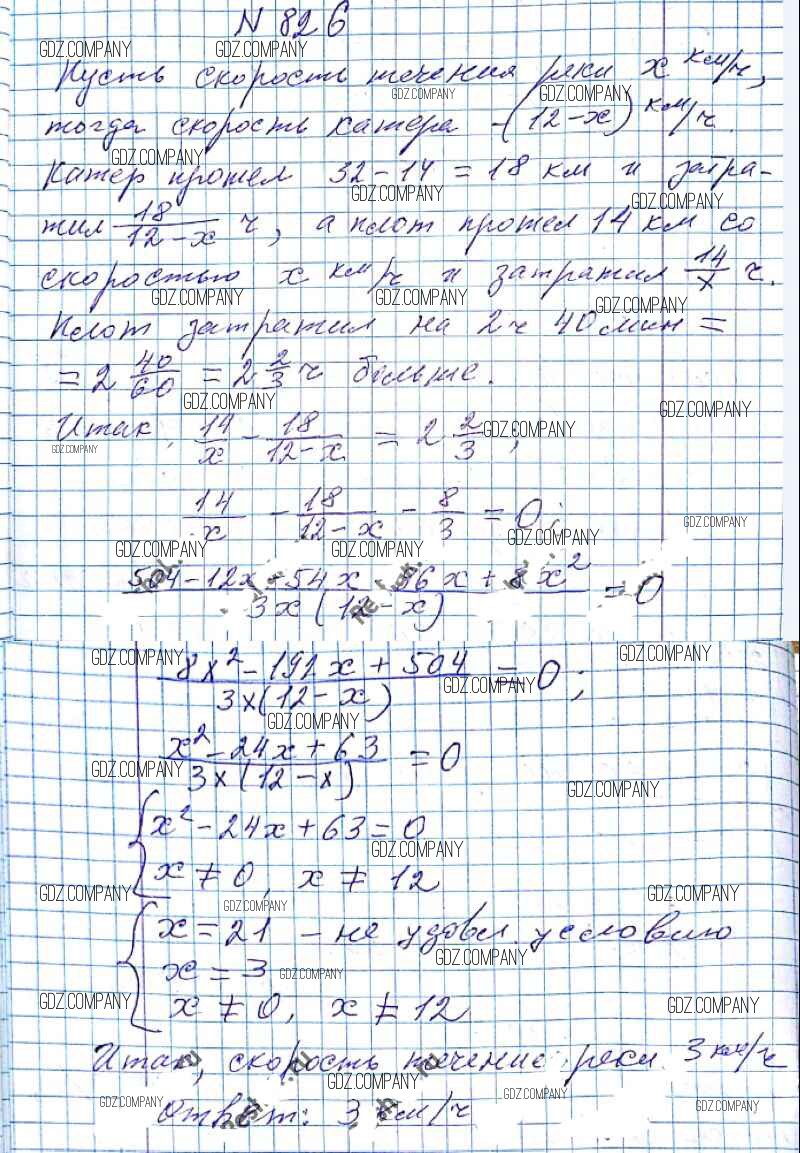 N 826
GDZ.COMPANY GDZ.COMPANY
Пусть скорость течения реки x км/ч,
GDZ.COMPANY GDZ.COMPANY
тогда скорость катера -(12-x) км/ч.
GDZ.COMPANY
Катер прошел 32-14 = 18 км и затра-
GDZ.COMPANY GDZ.COMPANY
тил 18/(12-x) ч, а плот прошел 14 км со
скоростью x км/ч и затратил 14/x ч.
GDZ.COMPANY GDZ.COMPANY GDZ.COMPANY
Плот затратил на 2ч 40мин =
= 2 40/60 = 2 2/3 ч больше.
GDZ.COMPANY GDZ.COMPANY
Итак, 14/x - 18/(12-x) = 2 2/3;
GDZ.COMPANY GDZ.COMPANY
14/x - 18/(12-x) - 8/3 = 0;
GDZ.COMPANY GDZ.COMPANY GDZ.COMPANY GDZ.COMPANY
(504-12x-54x 96x+8x²)/(3x(12-x)) = 0
GDZ.COMPANY GDZ.COMPANY
(8x²-192x+504)/(3x(12-x)) = 0;
GDZ.COMPANY GDZ.COMPANY
(x²-24x+63)/(3x(12-x)) = 0
GDZ.COMPANY GDZ.COMPANY
x²-24x+63=0
GDZ.COMPANY
x ≠ 0, x ≠ 12
GDZ.COMPANY GDZ.COMPANY GDZ.COMPANY
x = 21 - не удовл. условию
GDZ.COMPANY
x = 3
GDZ.COMPANY
x ≠ 0, x ≠ 12
GDZ.COMPANY GDZ.COMPANY
Итак, скорость течение реки 3 км/ч
GDZ.COMPANY
Ответ: 3 км/ч
GDZ.COMPANY GDZ.COMPANY GDZ.COMPANY